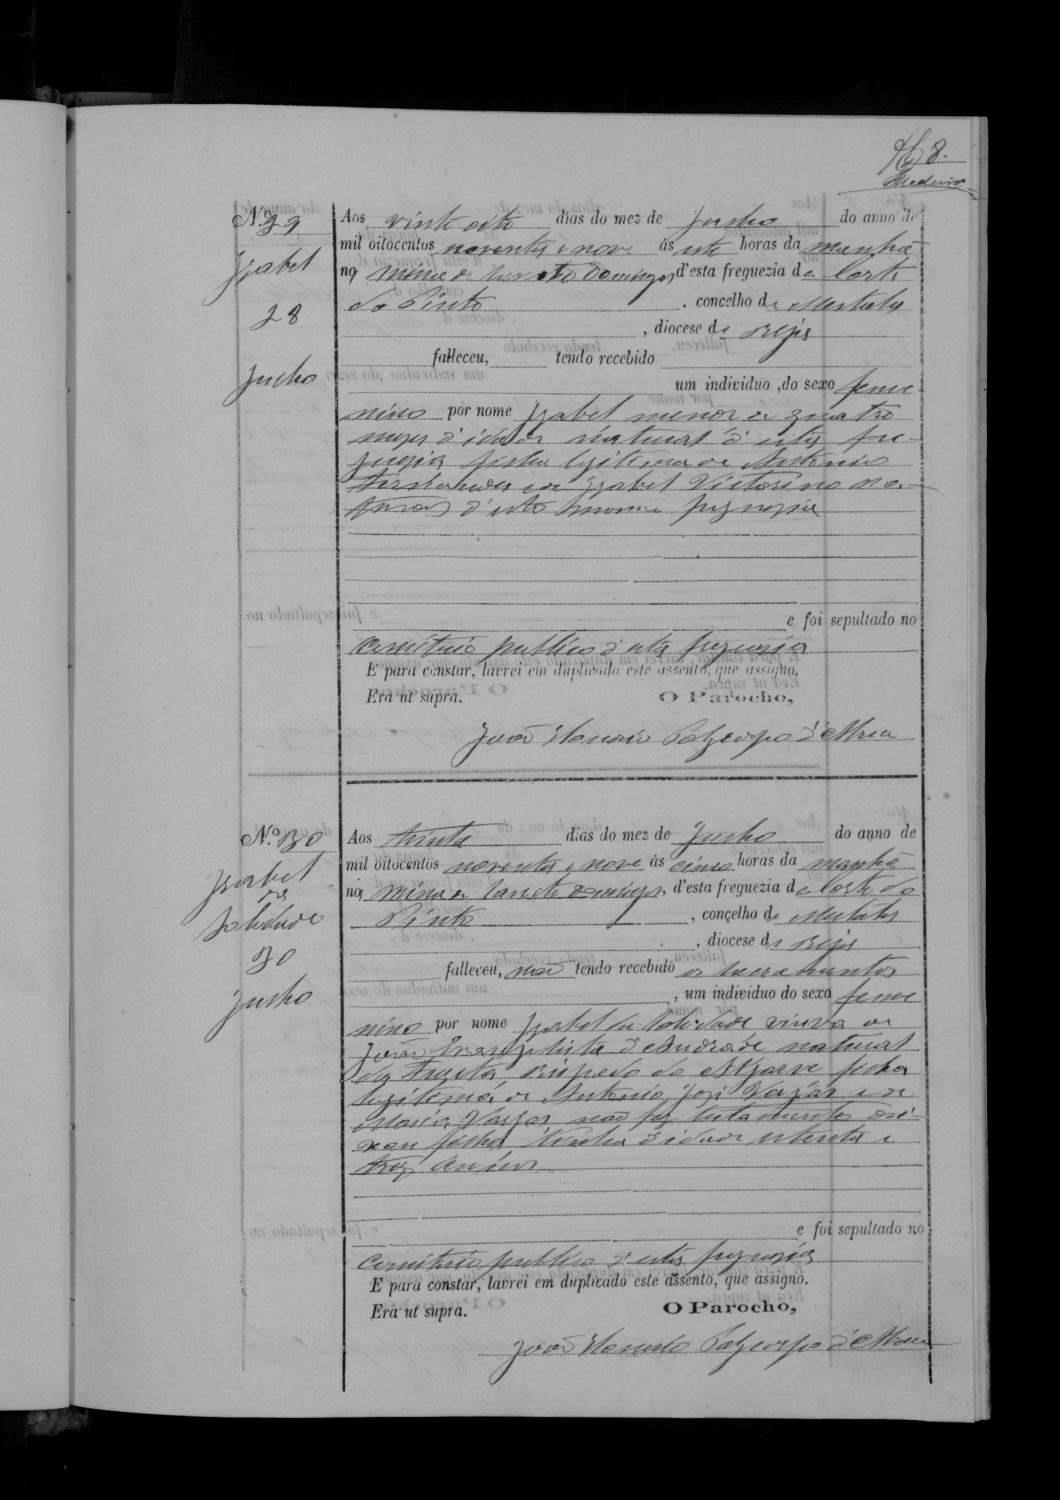 8.
Medeiros
N.º 29
Izabel
28
Junho
Aos vinte oito dias do mez de Junho do anno de
mil oitocentos noventa e nove ás sete horas da manhã
na mina de San Domingos, d'esta freguezia de Corte
do Pinto, concelho de Mertola
, diocese de Beja
falleceu, tendo recebido
um individuo do sexo femi
nino por nome Izabel menor de quatro
mezes d'idade natural d'esta fre-
guezia filha legitima de Antonio
e de Izabel Victorina na-
turaes d'esta mesma freguezia
e foi sepultado no
cemiterio publico d'esta freguezia
E para constar, lavrei em duplicado este assento, que assigno.
Era ut supra. O Parocho,
João d'Abreu
N.º 30
Izabel
da
Soledade
30
Junho
Aos trinta dias do mez de Junho do anno de
mil oitocentos noventa e nove ás cinco horas da manhã
na mina de San Domingos, d'esta freguezia de Corte do
Pinto, concelho de Mertola
, diocese de Beja
falleceu, não tendo recebido os sacramentos
, um individuo do sexo femi
nino por nome Izabel da Soledade viuva de
João Evangelista d'Andrade natural
da Fuzeta, bispado do Algarve filha
legitima de Antonio José Vargas e de
Maria Vargas, não fez testamento dei-
xou filhos, tinha d'idade setenta e
trez annos
e foi sepultado no
cemiterio publico d'esta freguezia
E para constar, lavrei em duplicado este assento, que assigno.
Era ut supra. O Parocho,
João d'Abreu